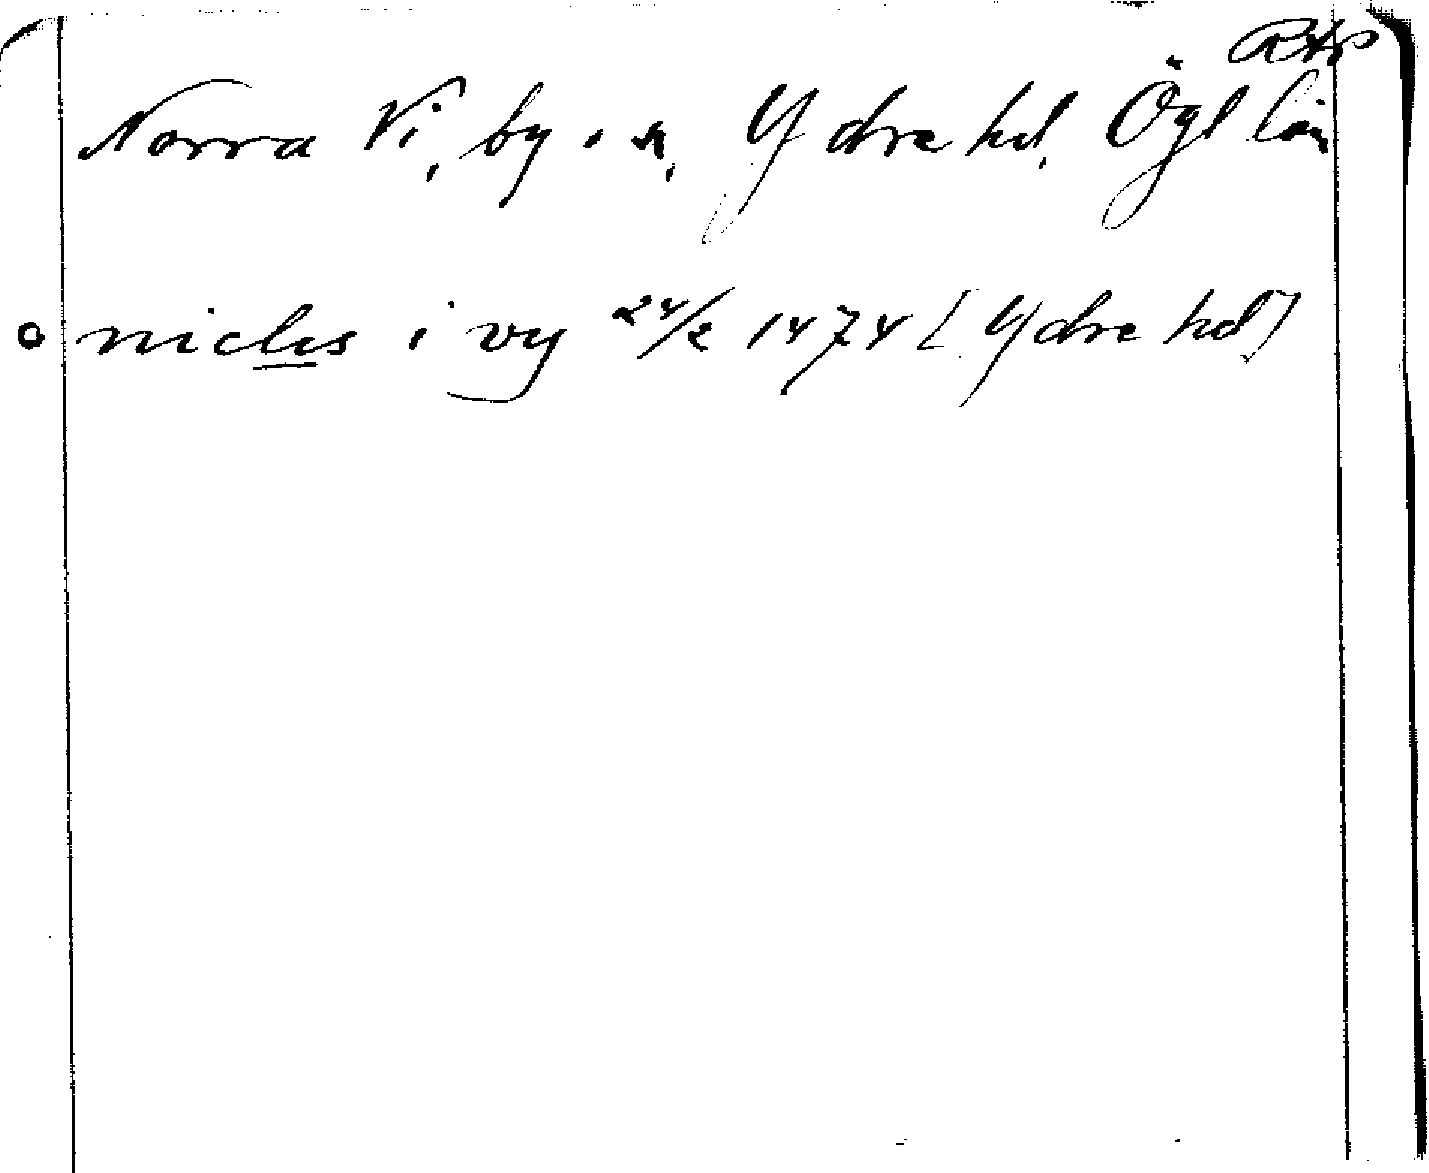 Norra Vi, by o. sn, Ydre hd, Ögl län
nicles i vy 24/2 1474 [Ydre hd]